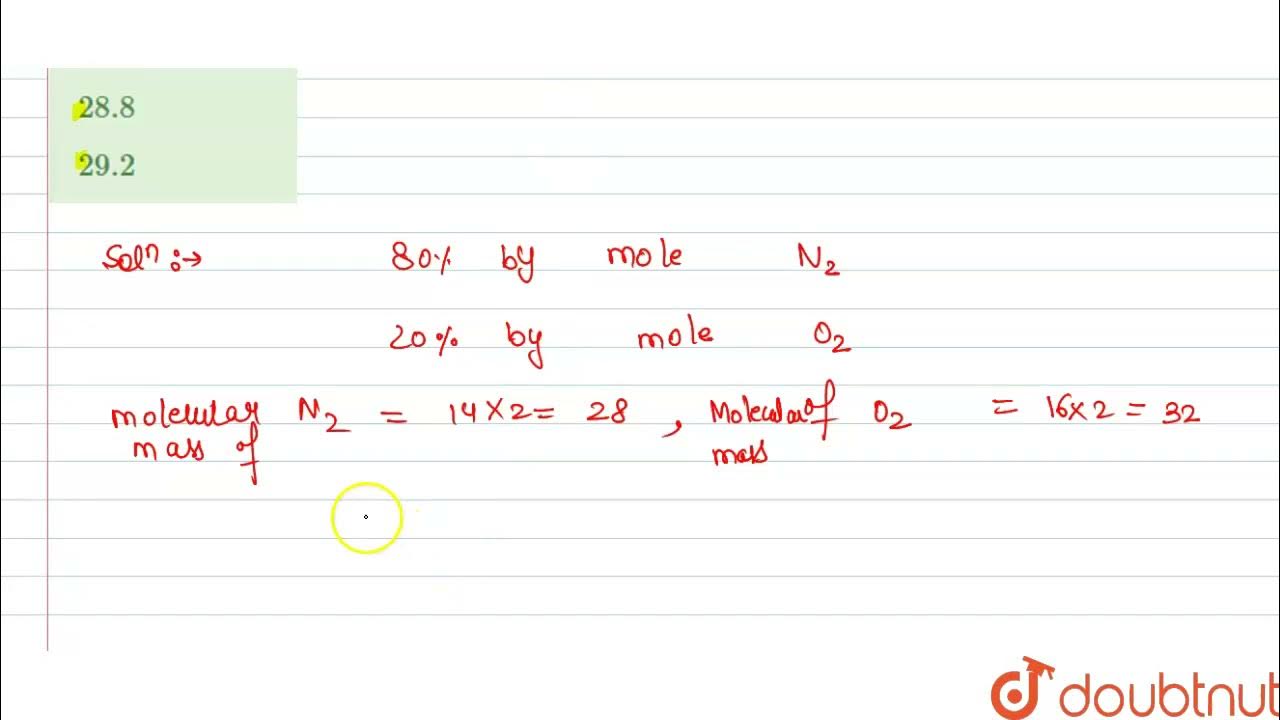 28.8
29.2
Solⁿ :→ 80% by mole N₂
20% by mole O₂
molecular mass of N₂ = 14×2 = 28 , Molecular mass of O₂ = 16×2 = 32
doubtnut